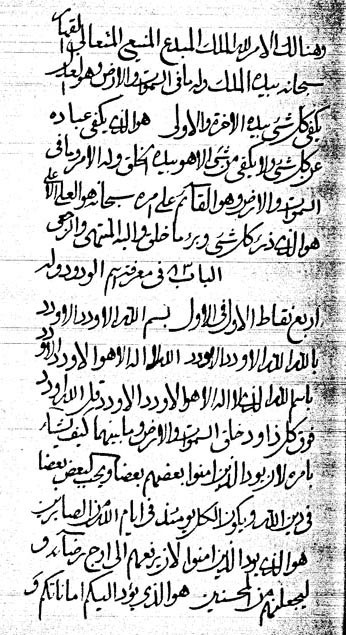 وهنالك الامر لله الملك المبدع المنيع المتعالي القهار
سبحانه بيده الملك وله ما في السموات والارض وهو
يكفي كل شيء بيده الاخرة والاولى هو الذي يكفي عباده
عن كل شيء ولا يكفي من شيء الا هو بيده الخلق وله الامر وما في
السموات والارض وهو القائم على امره سبحانه هو العلي الاعلى
هو الذي ذرء كل شيء وبرء ما خلق واليه المنتهى والرجعى
الباب في معرفة اسم الودود وله
اربع نقاط الاول في الاول بسم الله الاودد الاودد
بالله الله الاودد الاودد الله لا اله الا هو الاودد الاودد
باسم الله الذي لا اله الا هو الاودد الاودد قل الله اودد
فوق كل ذا ود خلق السموات والارض وما بينهما كيف يشاء
بامره لان يود الذين امنوا بعضهم بعضا ويحب بعض بعضا
في دين الله ويكون الكل يومئذ في ايام الله من الصابرين
هو الذي يود الذين امنوا لان يرفعهم الى
من المحسنين هو الذي يؤد اليكم اماناتكم و